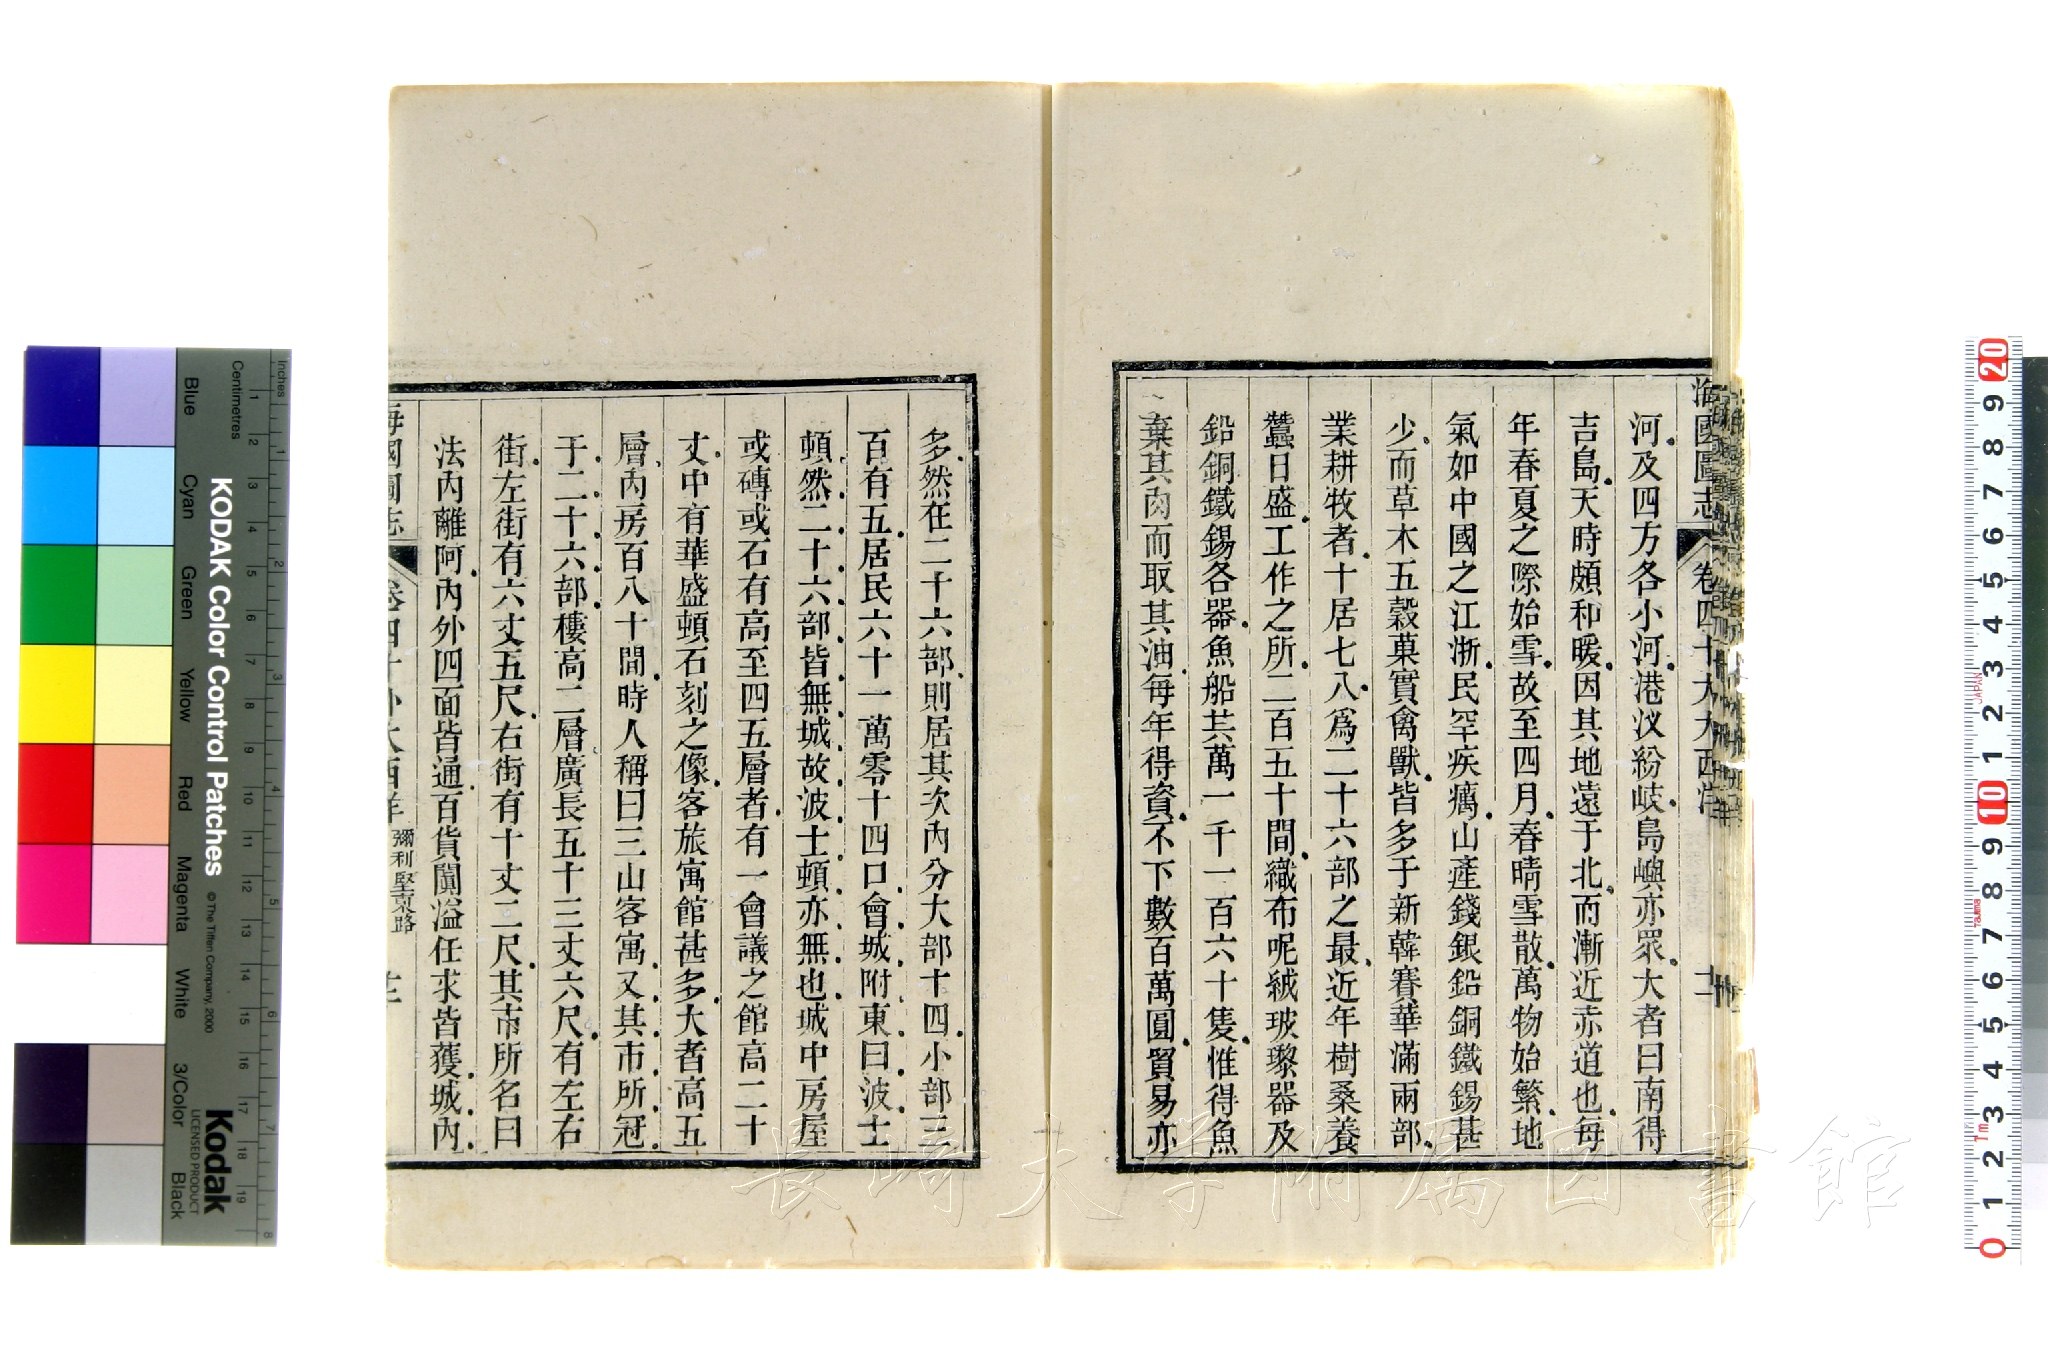 海國圖志
卷四十大西洋
河及四方各小河港汊紛岐島嶼亦眾大者曰南得
吉島天時頗和暖因其地遠于北而漸近赤道也每
年春夏之際始雪故至四月春晴雪散萬物始繁地
氣如中國之江浙民罕疾癘山產錢銀鉛銅鐵錫甚
少而草木五穀菓實禽獸皆多于新韓賽華滿兩部
業耕牧者十居七八爲二十六部之最近年樹桑養
蠶日盛工作之所二百五十間織布呢絨玻瓈器及
鉛銅鐵錫各器魚船共萬一千一百六十隻惟得魚
棄其肉而取其油每年得資不下數百萬圓貿易亦
多然在二十六部則居其次內分大部十四小部三
百有五居民六十一萬零十四口會城附東曰波士
頓然二十六部皆無城故波士頓亦無也城中房屋
或磚或石有高至四五層者有一會議之館高二十
丈中有華盛頓石刻之像客旅寓館甚多大者高五
層內房百八十間時人稱曰三山客寓又其市所冠
于二十六部樓高二層廣長五十三丈六尺有左右
街左街有六丈五尺右街有十丈二尺其市所名曰
法內離阿內外四面皆通百貨闐溢任求皆獲城內
海國圖志
卷四十 外大西洋 彌利堅東路
KODAK Color Control Patches
© The Tiffen Company, 2000
Kodak
LICENSED PRODUCT
Inches
Centimetres
Blue
Cyan
Green
Yellow
Red
Magenta
White
3/Color
Black
1 2 3 4 5 6 7 8 9 10 11 12 13 14 15 16 17 18 19
1 2 3 4 5 6 7 8
20 9 8 7 6 5 4 3 2 1 10 9 8 7 6 5 4 3 2 1 0
JAPAN
Tajima
1m
長崎大学附属図書館